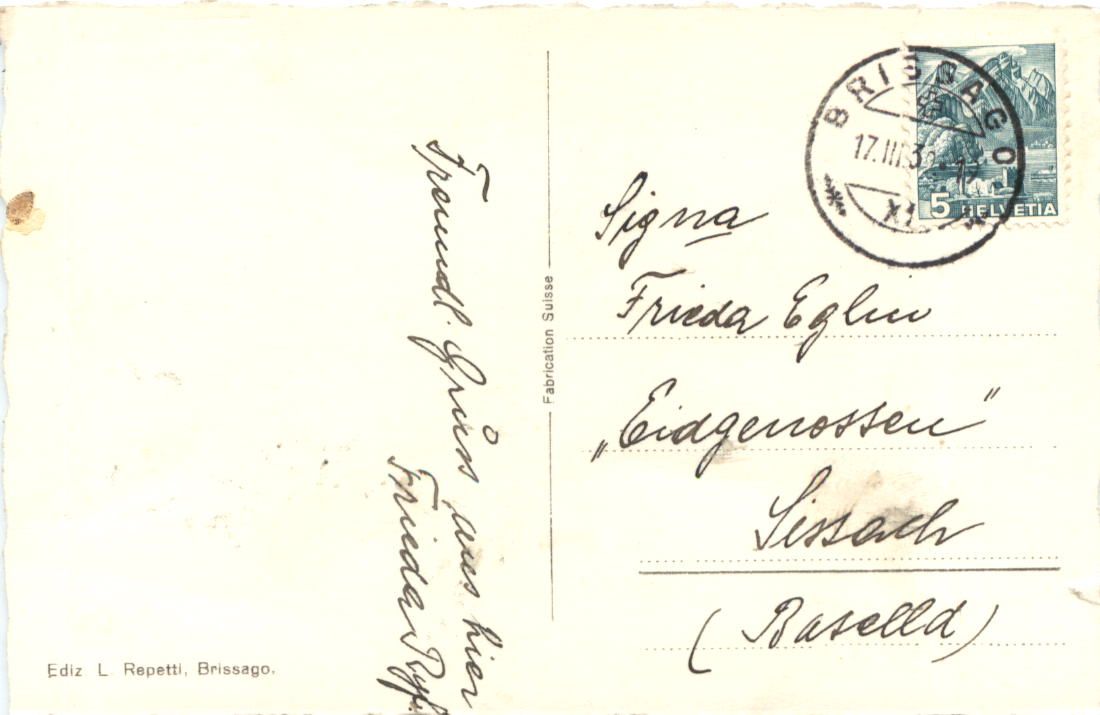 Freundl. Grüss aus hier
Frieda Ryf.
Fabrication Suisse
Ediz L. Repetti, Brissago.
BRISSAGO
17.III.3
XI
5 HELVETIA
Signa
Frieda Eglin
„Eidgenossen"
Sissach
(Baselld)